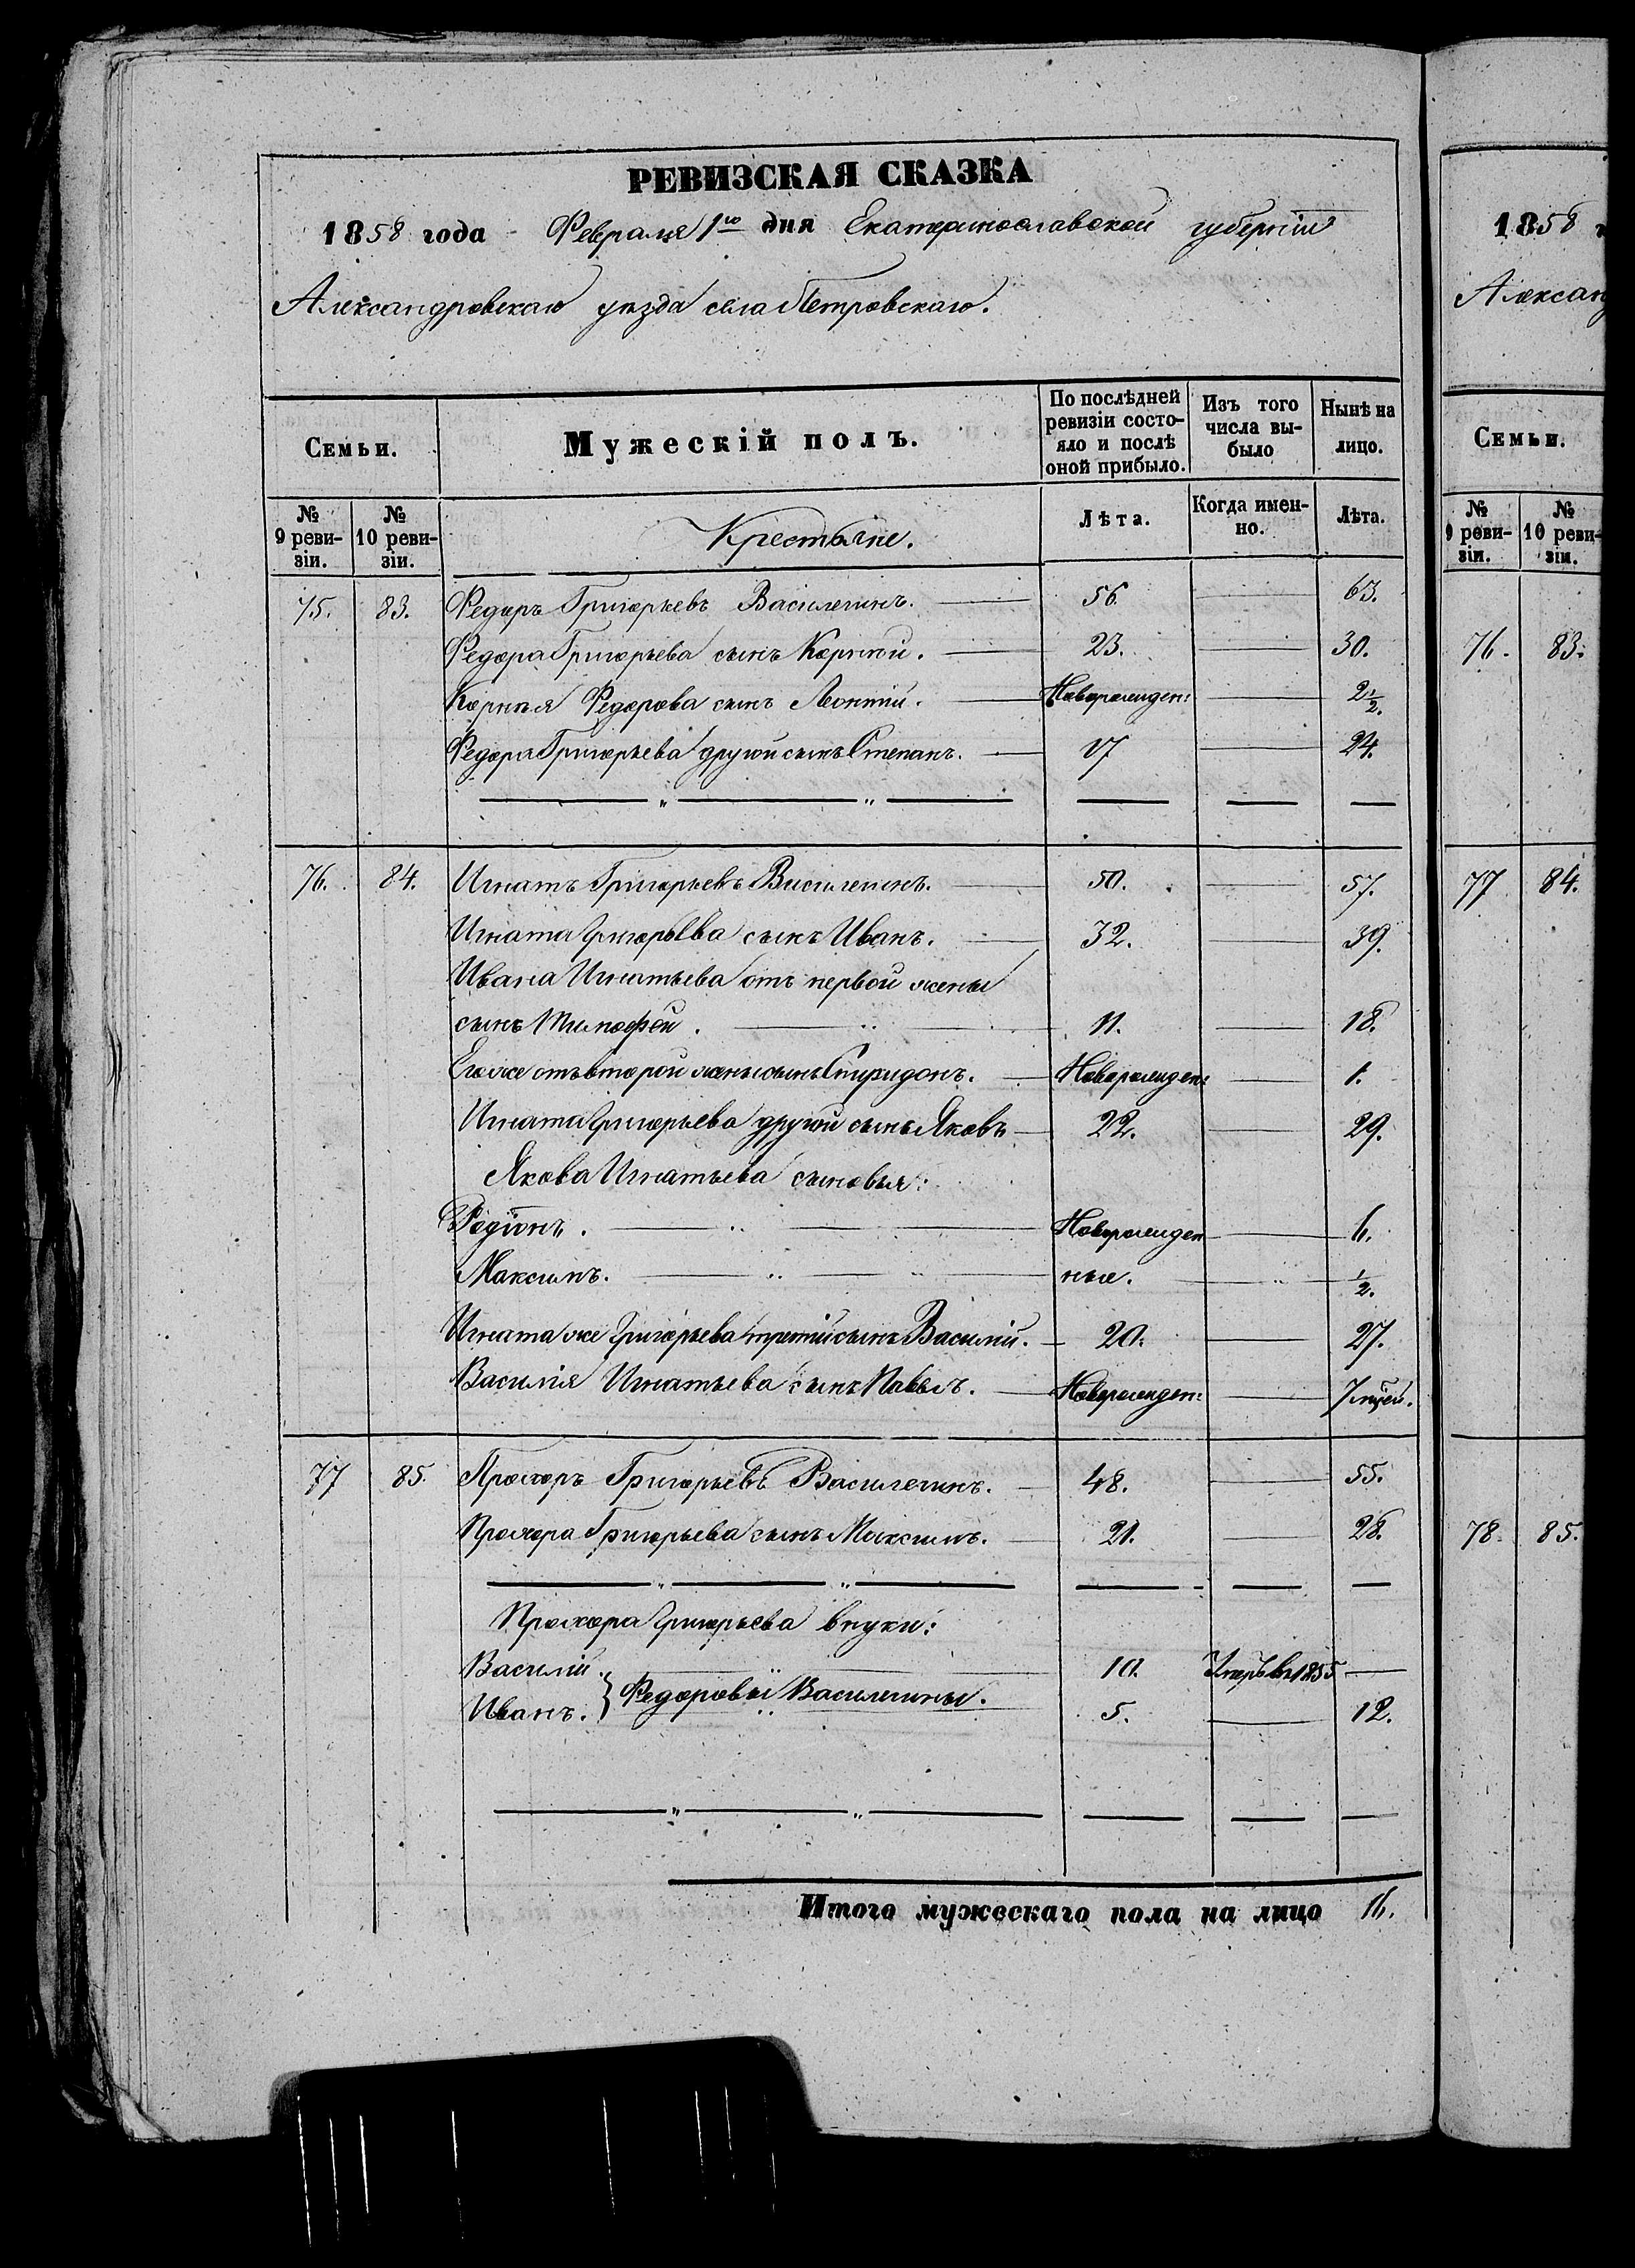 РЕВИЗСКАЯ СКАЗКА
1858 года Февраля 1го дня Екатеринославской губерніи
Александровскаго уѣзда села Петровскаго.
Семьи.
Мужескій полъ.
По послѣдней ревизіи состояло и послѣ оной прибыло.
Изъ того числа выбыло
Нынѣ на лицо.
№ 9 ревизіи.
№ 10 ревизіи.
Крестьяне.
Лѣта.
Когда именно.
Лѣта.
75. 83. Федоръ Григорьевъ Василечинъ. 56. 63.
Федора Григорьева сынъ Корней. 23. 30.
Корнѣя Федорова сынъ Леонтій. Новорожден: 2 1/2.
Федора Григорьева другой сынъ Степанъ. 17 24.
76. 84. Игнатъ Григорьевъ Василечинъ. 50. 57.
Игната Григорьева сынъ Иванъ. 32. 39.
Ивана Игнатьева отъ первой жены
сынъ Тимофей. 11. 18.
Его же отъ второй жены сынъ Спиридонъ. Новорожден: 1.
Игната Григорьева другой сынъ Яковъ 22. 29.
Якова Игнатьева сыновья:
Родіонъ. Новорожден 6.
Максимъ. ные. 1/2.
Игната же Григорьева третій сынъ Василій. 20. 27.
Василія Игнатьева сынъ Павелъ. Новорожден: 7 мѣсей.
77 85. Прохоръ Григорьевъ Василечинъ. 48. 55.
Прохора Григорьева сынъ Максимъ. 21. 28.
Прохора Григорьева внуки:
Василій. 10. Умеръ въ 1855
Федоровы Василечины.
Иванъ. 5. 12.
Итого мужескаго пола на лицо 16.
1858
Александ
Семьи.
№ 9 ревизіи.
№ 10 ревизіи.
76. 83.
77 84.
78. 85.